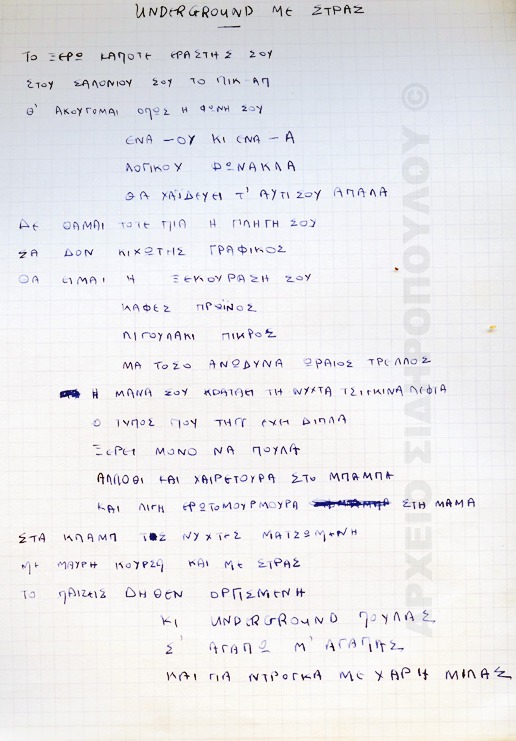 UNDERGROUND ΜΕ ΣΤΡΑΣ
ΤΟ ΞΕΡΩ ΚΑΠΟΤΕ ΕΡΑΣΤΗΣ ΣΟΥ
ΣΤΟΥ ΣΑΛΟΝΙΟΥ ΣΟΥ ΤΟ ΠΙΚ-ΑΠ
Θ' ΑΚΟΥΓΟΜΑΙ ΟΠΩΣ Η ΦΩΝΗ ΣΟΥ
ΕΝΑ -ΟΥ ΚΙ ΕΝΑ -Α
ΛΟΓΙΚΟΥ
ΘΑ ΧΑΪΔΕΥΕΙ Τ' ΑΥΤΙ ΣΟΥ ΑΠΑΛΑ
ΔΕ ΘΑΜΑΙ ΤΟΤΕ ΠΙΑ Η ΠΛΗΓΗ ΣΟΥ
ΣΑ ΔΟΝ ΚΙΧΩΤΗΣ ΓΡΑΦΙΚΟΣ
ΘΑ ΕΙΜΑΙ Η ΞΕΚΟΥΡΑΣΗ ΣΟΥ
ΚΑΦΕΣ ΠΡΩΪΝΟΣ
ΛΙΓΟΥΛΑΚΙ ΠΙΚΡΟΣ
ΜΑ ΤΟΣΟ ΑΝΩΔΥΝΑ ΩΡΑΙΟΣ ΤΡΕΛΛΟΣ
Η ΜΑΝΑ ΣΟΥ ΚΡΑΤΑΕΙ ΤΗ ΝΥΧΤΑ ΤΣΙΓΚΙΝΑ ΛΕΦΤΑ
Ο ΤΥΠΟΣ ΠΟΥ ΤΗΝ ΕΧΕΙ ΔΙΠΛΑ
ΞΕΡΕΙ ΜΟΝΟ ΝΑ ΠΟΥΛΑ
ΑΛΛΟΘΙ ΚΑΙ ΧΑΙΡΕΤΟΥΡΑ ΣΤΟ ΜΠΑΜΠΑ
ΚΑΙ ΛΙΓΗ ΕΡΩΤΟΜΟΥΡΜΟΥΡΑ ΣΤΗ ΜΑΜΑ
ΣΤΑ ΚΛΑΜΠ ΤΙΣ ΝΥΧΤΕΣ ΜΑΤΣΩΜΕΝΗ
ΜΕ ΜΑΥΡΗ ΚΟΥΡΣΑ ΚΑΙ ΜΕ ΣΤΡΑΣ
ΤΟ ΠΑΙΖΕΙΣ ΔΗΘΕΝ ΟΡΓΙΣΜΕΝΗ
ΚΙ UNDERGROUND ΠΟΥΛΑΣ
Σ' ΑΓΑΠΩ Μ' ΑΓΑΠΑΣ
ΚΑΙ ΓΙΑ ΝΤΡΟΓΚΑ ΜΕ ΧΑΡΗ ΜΙΛΑΣ
ΑΡΧΕΙΟ ΣΙΔΗΡΟΠΟΥΛΟΥ ©